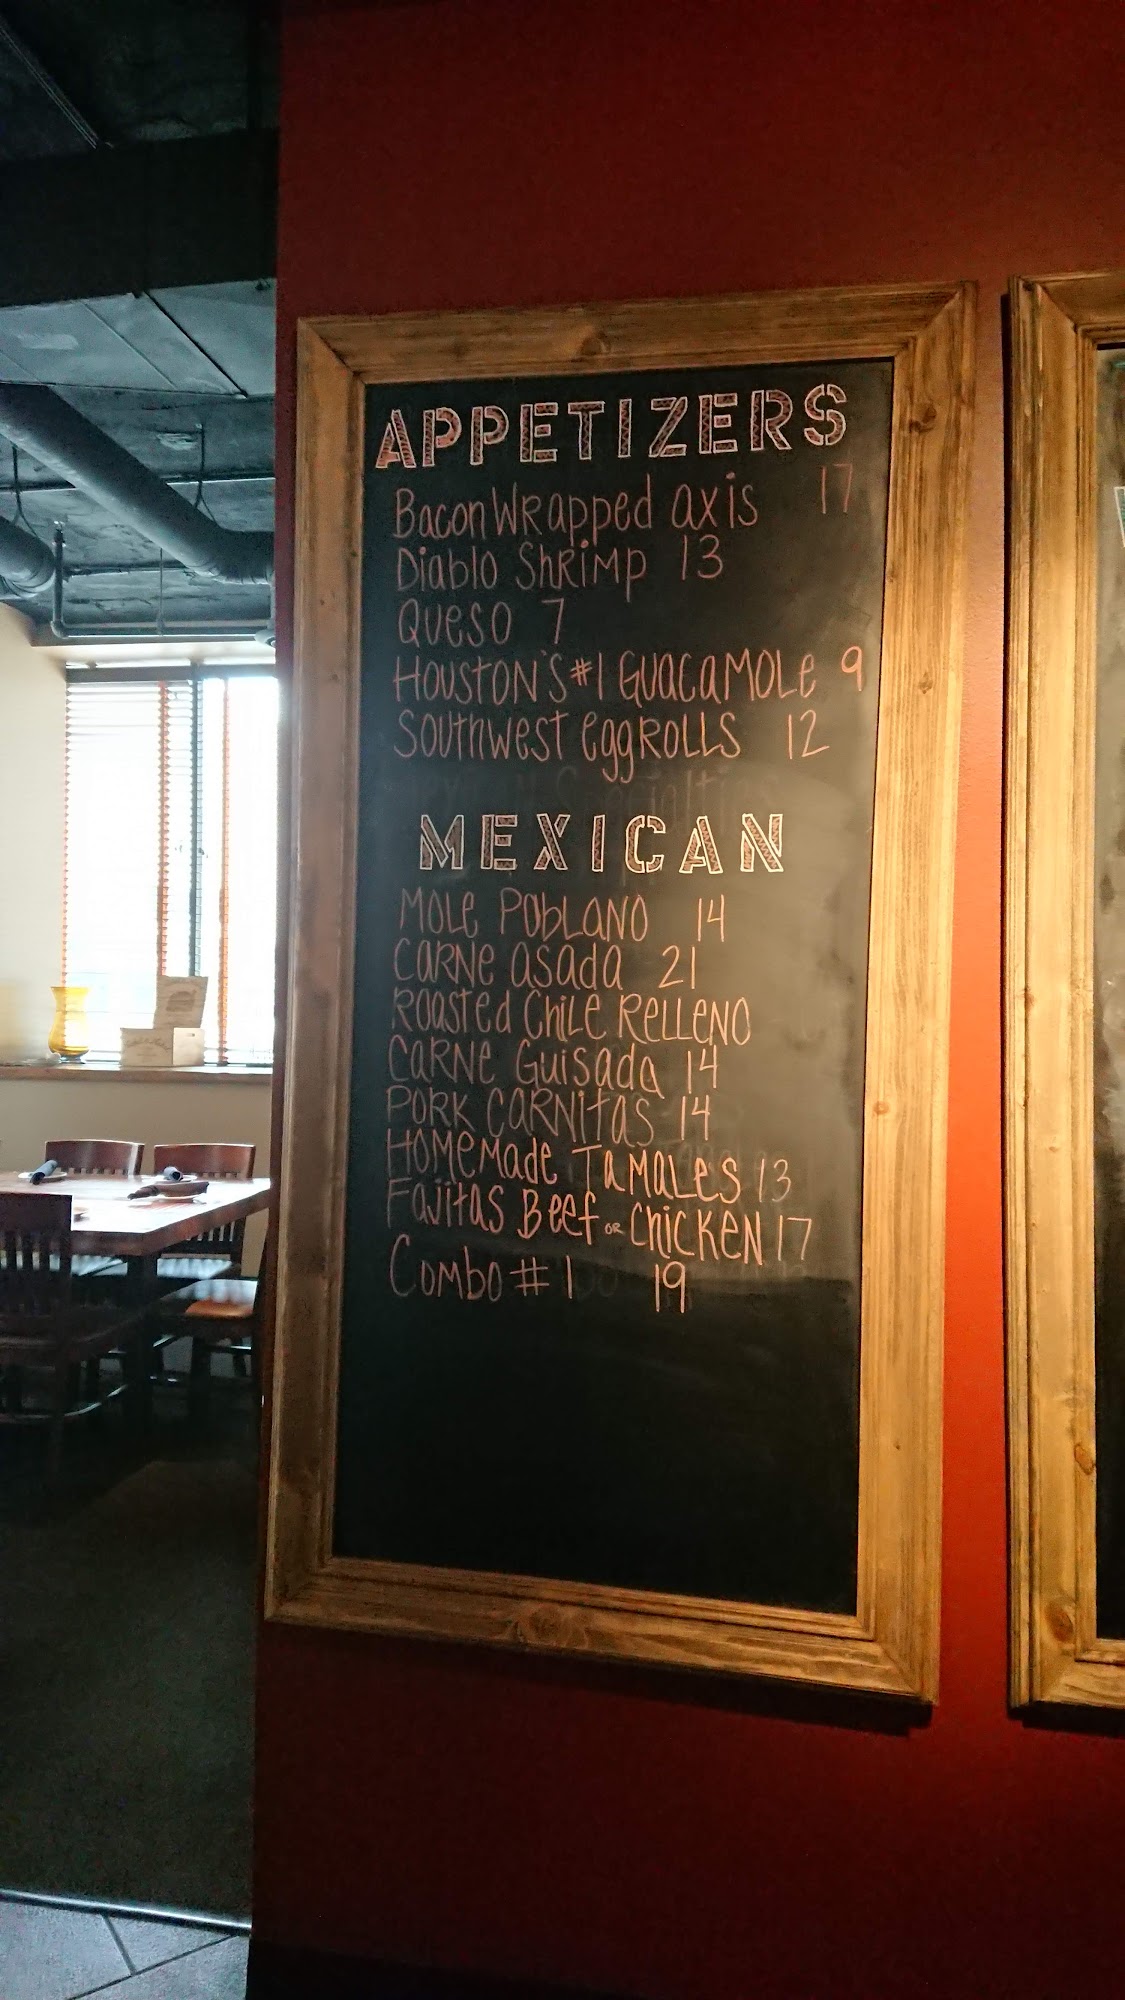 APPETIZERS
Bacon Wrapped axis 17
Diablo Shrimp 13
Queso 7
Houston's #1 Guacamole 9
Southwest eggrolls 12
MEXICAN
Mole Poblano 14
Carne asada 21
Roasted Chile Relleno
Carne Guisada 14
Pork Carnitas 14
Homemade Tamales 13
Fajitas Beef or Chicken 17
Combo #1 19